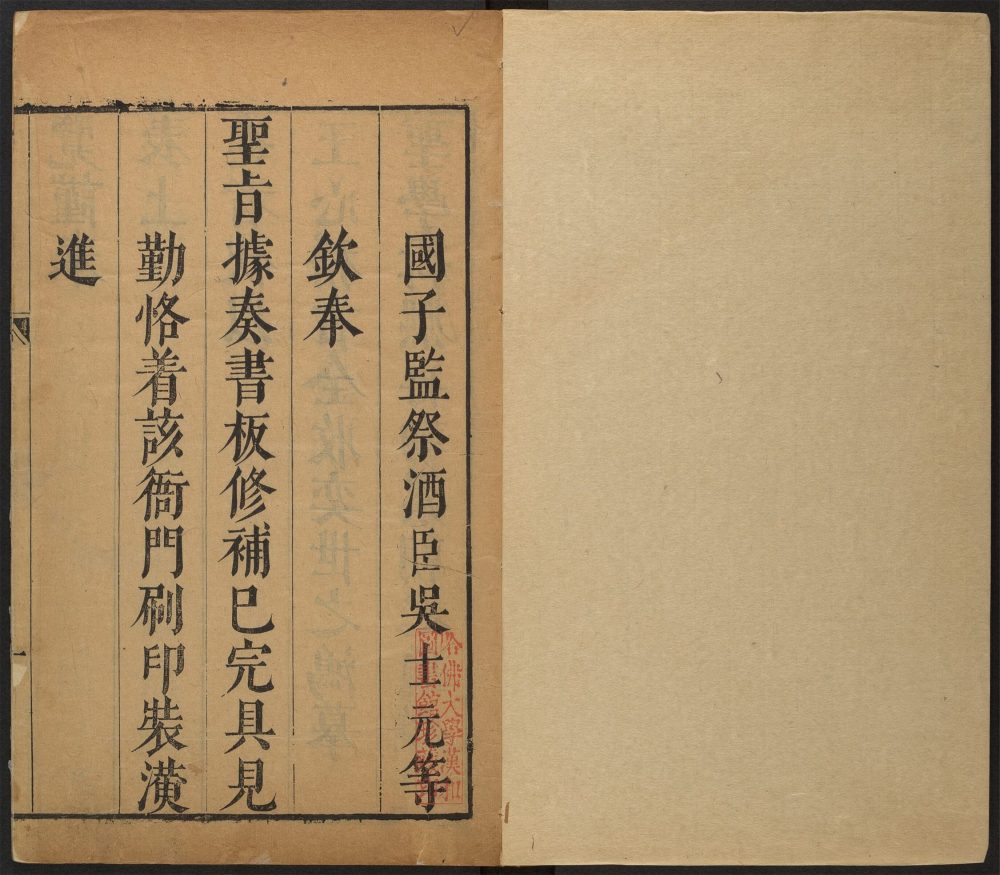 國子監祭酒臣吳士元等
欽奉
聖旨據奏書板修補已完具見
勤恪着該衙門刷印裝潢
進
哈佛大學漢和
圖書館珍藏印